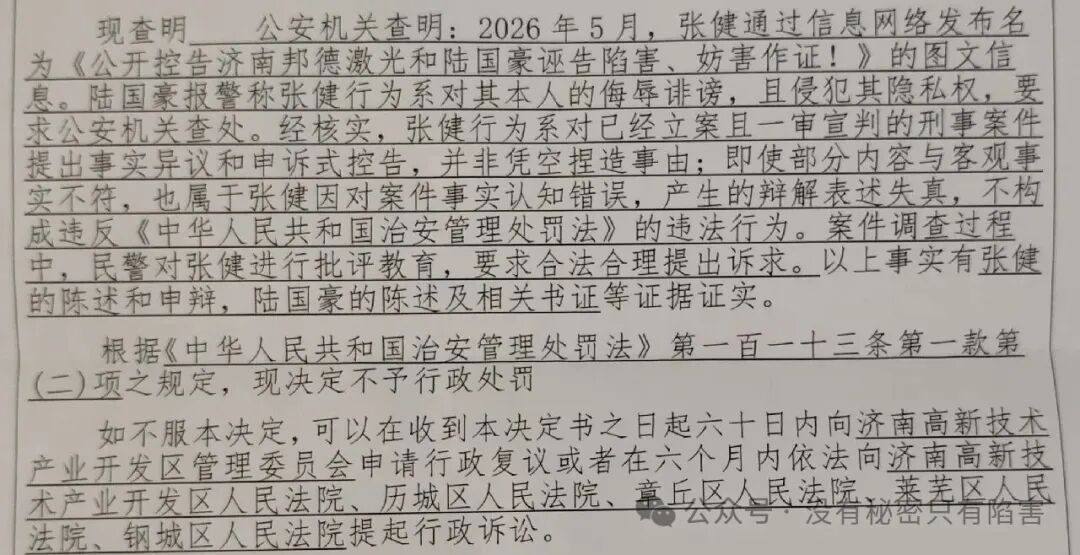 现查明 公安机关查明：2026年5月，张健通过信息网络发布名
为《公开控告济南邦德激光和陆国豪诬告陷害、妨害作证！》的图文信
息。陆国豪报警称张健行为系对其本人的侮辱诽谤，且侵犯其隐私权，要
求公安机关查处。经核实，张健行为系对已经立案且一审宣判的刑事案件
提出事实异议和申诉式控告，并非凭空捏造事由；即使部分内容与客观事
实不符，也属于张健因对案件事实认知错误，产生的辩解表述失真，不构
成违反《中华人民共和国治安管理处罚法》的违法行为。案件调查过程
中，民警对张健进行批评教育，要求合法合理提出诉求。以上事实有张健
的陈述和申辩，陆国豪的陈述及相关书证等证据证实。
根据《中华人民共和国治安管理处罚法》第一百一十三条第一款第
(二)项之规定，现决定不予行政处罚
如不服本决定，可以在收到本决定书之日起六十日内向济南高新技术
产业开发区管理委员会申请行政复议或者在六个月内依法向济南高新技
术产业开发区人民法院、历城区人民法院、章丘区人民法院、莱芜区人民
法院、钢城区人民法院提起行政诉讼。
公众号·没有秘密只有陷害